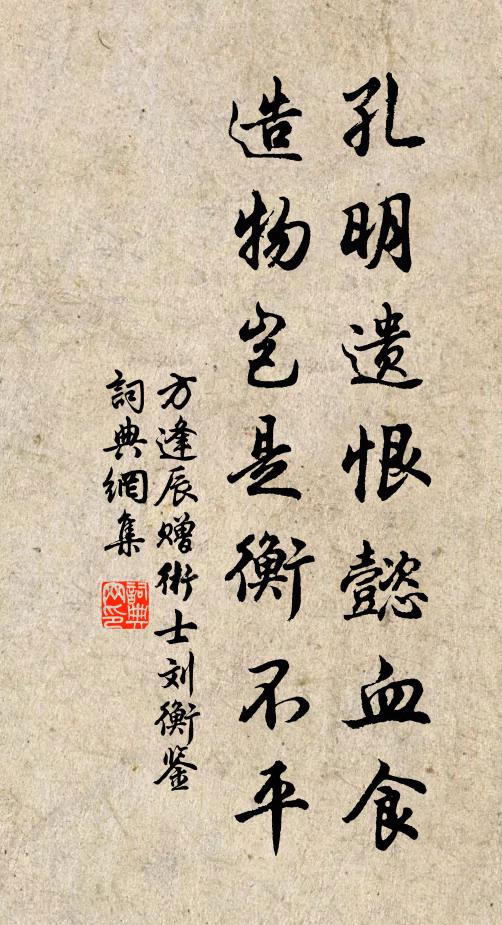 孔明遗恨懿血食
造物岂是衡不平
方逢辰赠術士刘衡鉴
詞典網集
詞典
网印